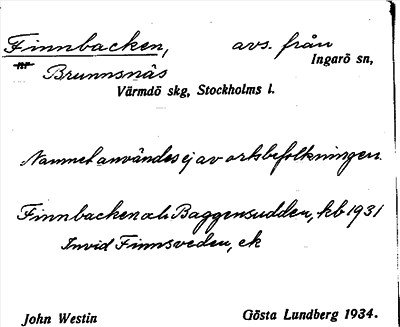 Finnbacken, avs. från
Ingarö sn,
nr Brunnsnäs
Värmdö skg, Stockholms l.
Namnet användes ej av ortsbefolkningen.
Finnbacken o.ch Baggensudden, kb 1931
Invid Finnsveden, ek
John Westin Gösta Lundberg 1934.